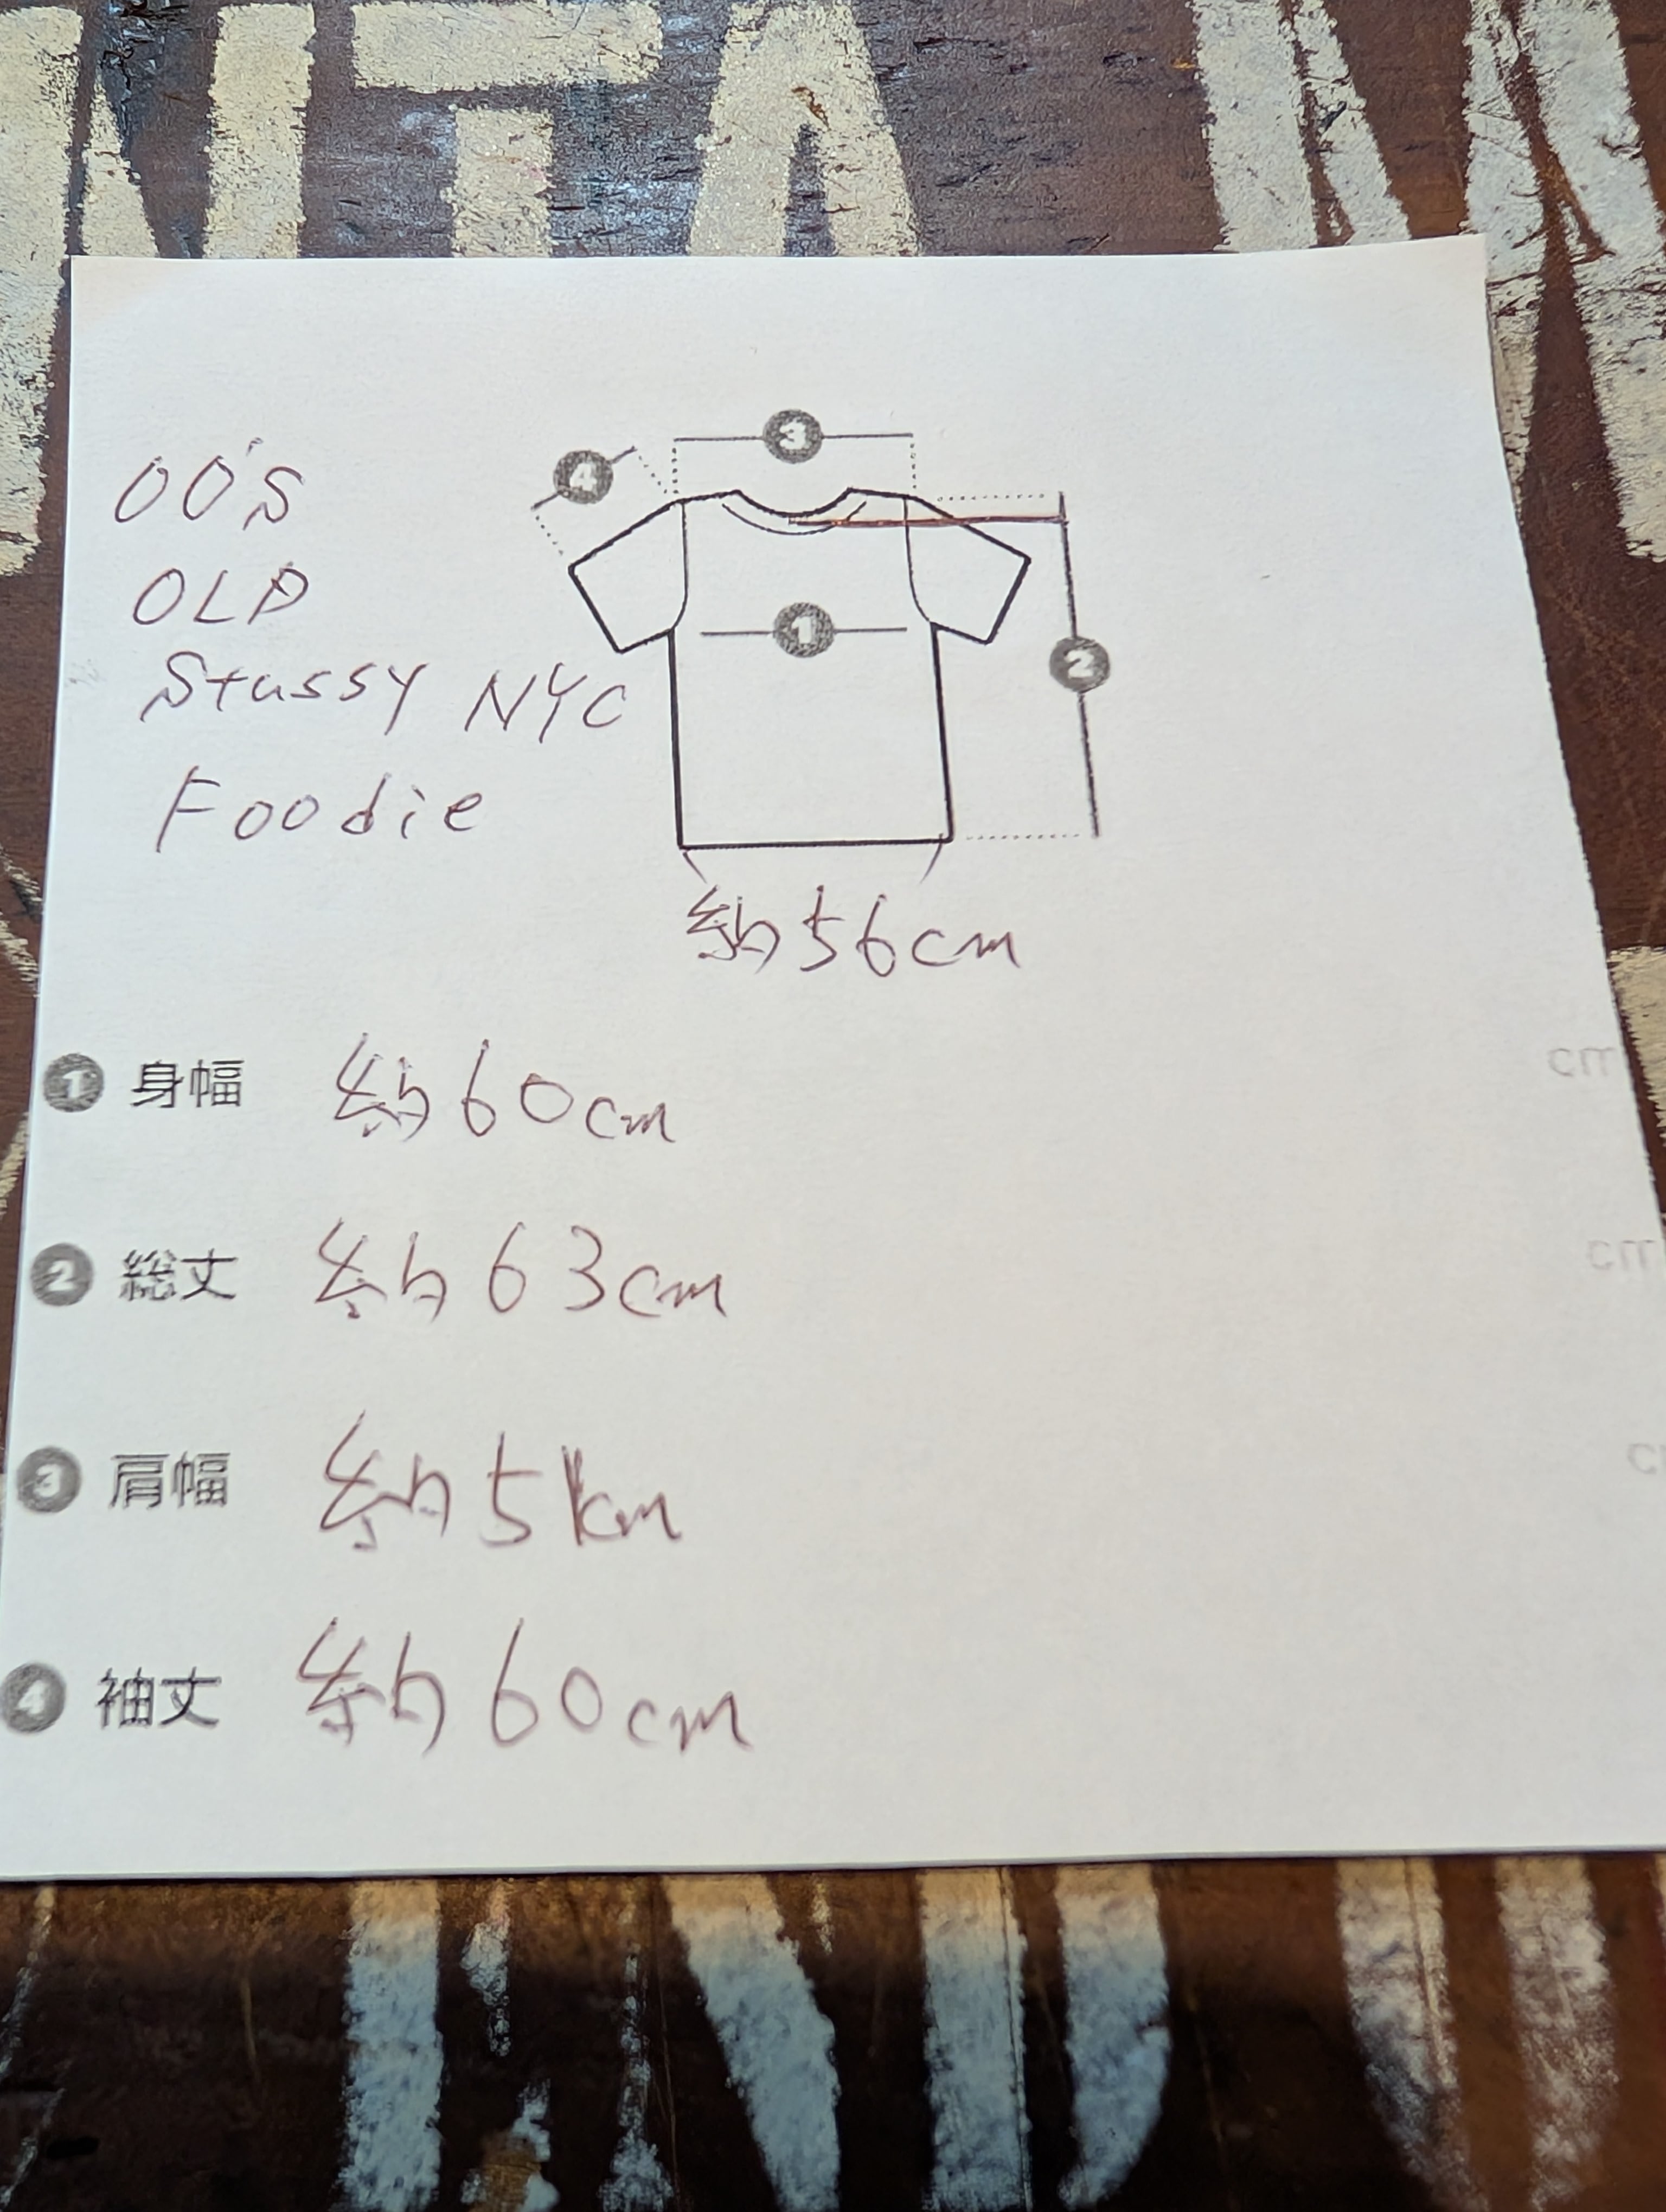 00'S
OLD
Stussy NYC
Foodie
4
3
1
2
約56cm
1 身幅 約60cm cm
2 総丈 約63cm cm
3 肩幅 約51cm
4 袖丈 約60cm